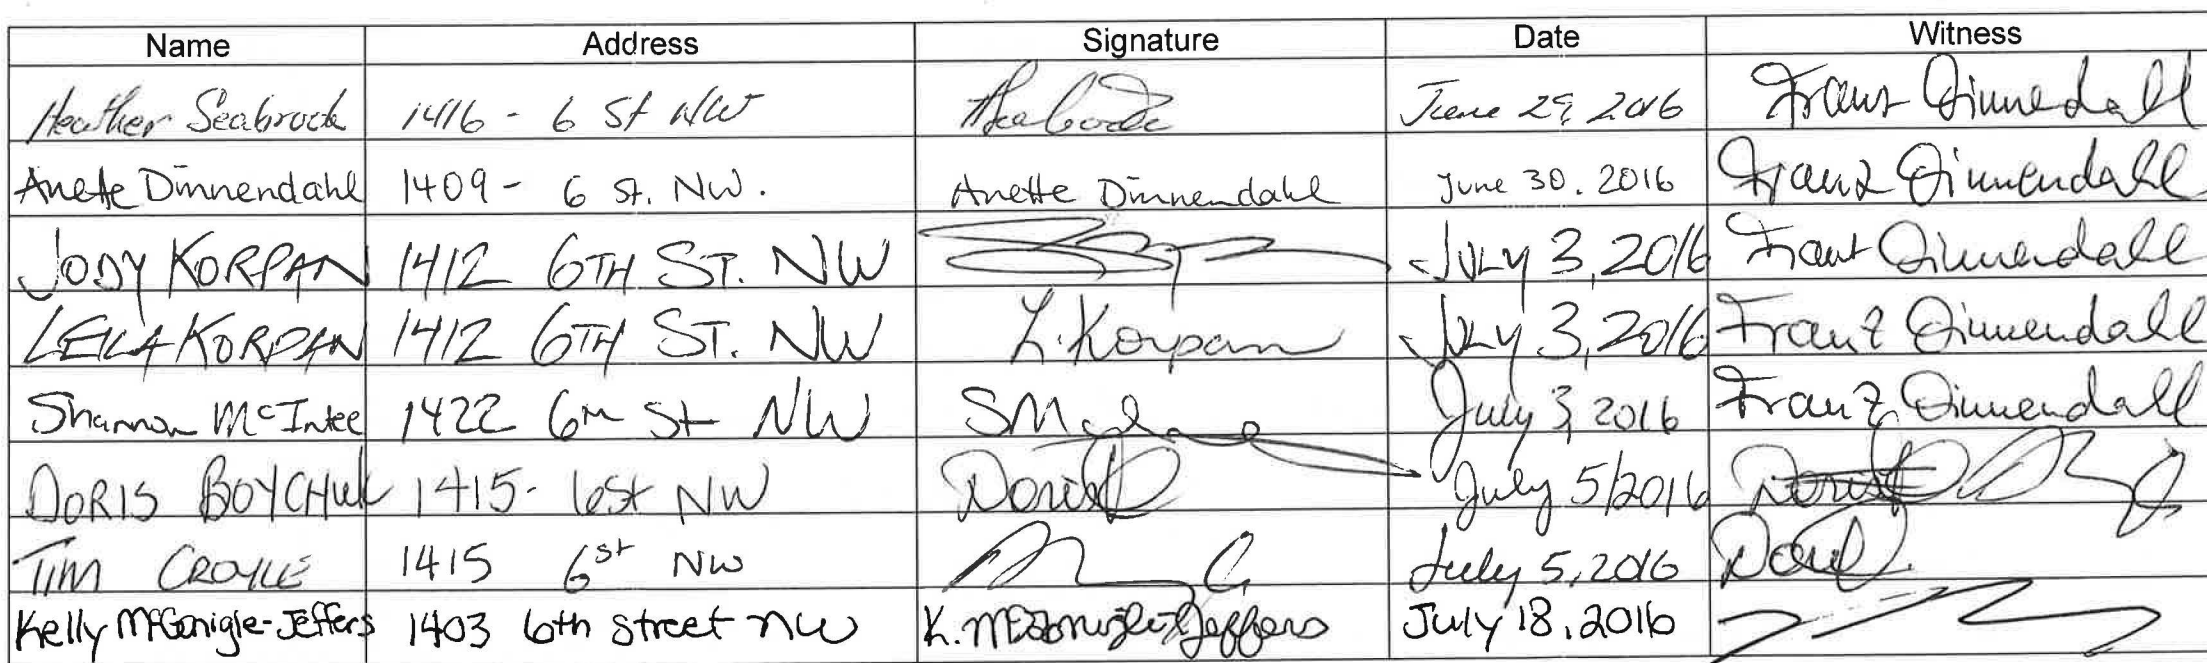 Name Address Signature Date Witness
Heather Seabrook 1416 - 6 St NW June 29, 2016 Franz Dinnendahl
Anette Dinnendahl 1409 - 6 St. NW. Anette Dinnendahl June 30, 2016 Franz Dinnendahl
JODY KORPAN 1412 6TH ST. NW JULY 3, 2016 Franz Dinnendahl
LEILA KORPAN 1412 6TH ST. NW L. Korpan JULY 3, 2016 Franz Dinnendahl
Shannon McIntee 1422 6th St NW July 3, 2016 Franz Dinnendahl
DORIS BOYCHUK 1415 - 6 St NW July 5/2016
TIM CROYLE 1415 6 St NW July 5, 2016
Kelly McGonigle-Jeffers 1403 6th street nw K. McGonigle-Jeffers July 18, 2016